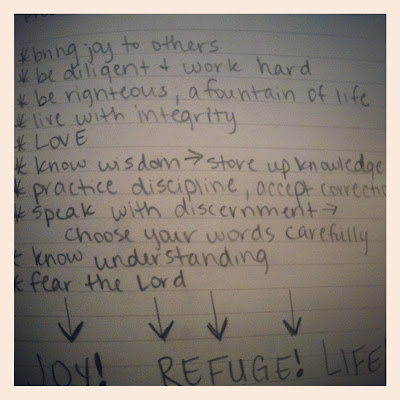 * bring joy to others
* be diligent + work hard
* be righteous, a fountain of life
* live with integrity
* LOVE
* know wisdom → store up knowledge
* practice discipline, accept correctio
* speak with discernment →
choose your words carefully
* know understanding
* fear the Lord
↓ ↓ ↓ ↓
JOY! REFUGE! LIFE